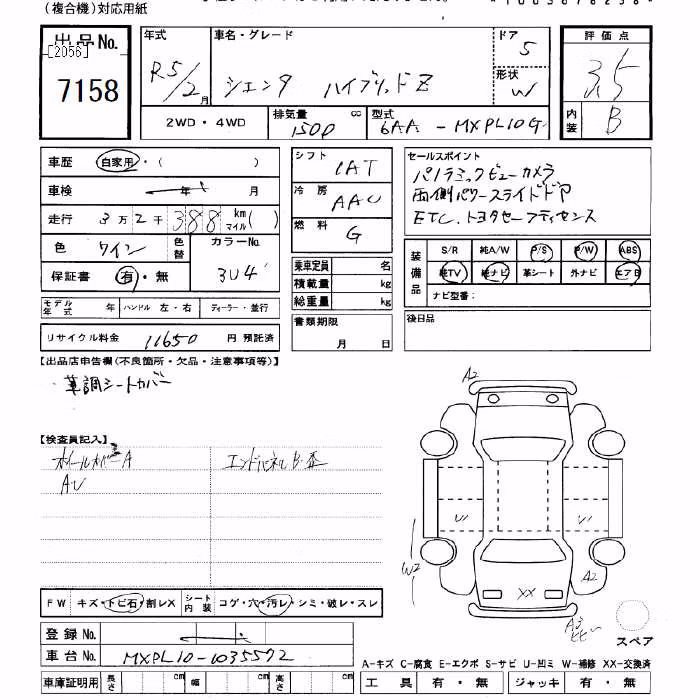 (複合機)対応用紙
出品No.
[2056]
7158
年式 R5/2月
車名・グレード シエンタ ハイブリッドZ
ドア 5
形状 W
評価点 3.5
内装 B
2WD・4WD
排気量 1500 cc
型式 6AA-MXPL10G
車歴 自家用・( )
車検 年 月
走行 3万2千388 km マイル( )
色 ワイン 色替 カラーNo. 3U4
保証書 有・無
モデル年式 年 ハンドル 左・右 ディーラー・並行
リサイクル料金 11650 円 預託済
シフト IAT
冷房 AAC
燃料 G
乗車定員 名
積載量 kg
総重量 kg
書類期限
月 日
セールスポイント
パノラミックビューカメラ
両側パワースライドドア
ETC.トヨタセーフティセンス
装備品
S/R 純A/W P/S P/W ABS
純TV 純ナビ 革シート 外ナビ エアB
ナビ型番:
後日品
【出品店申告欄(不良箇所・欠品・注意事項等)】
・革調シートカバー
【検査員記入】
ホイールカバーA エンドパネルB・歪
AU
A2
U1 U1
W2
A2
XX
A3
スペア
FW キズ・トビ石・割レX シート内装 コゲ・穴・汚レ・シミ・破レ・スレ
登録No.
車台No. MXPL10-1035572
車庫証明用 長さ cm 幅 cm 高さ cm
A-キズ C-腐食 E-エクボ S-サビ U-凹ミ W-補修 XX-交換済
工具 有・無 ジャッキ 有・無